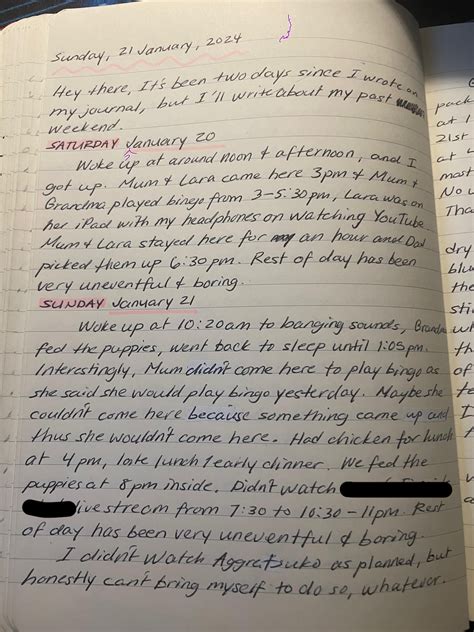 Sunday, 21 January, 2024
Hey there, It's been two days since I wrote on
my journal, but I'll write about my past
weekend.
SATURDAY January 20
Woke up at around noon & afternoon, and I
got up. Mum & Lara came here 3pm & Mum &
Grandma played bingo from 3-5:30pm, Lara was on
her iPad with my headphones on watching YouTube.
Mum & Lara stayed here for an hour and Dad
picked them up 6:30pm. Rest of day has been
very uneventful & boring.
SUNDAY January 21
Woke up at 10:20am to banging sounds, Grandma
fed the puppies, went back to sleep until 1:05pm.
Interestingly, Mum didn't come here to play bingo as
she said she would play bingo yesterday. Maybe she
couldn't come here because something came up and
thus she wouldn't come here. Had chicken for lunch
at 4pm, late lunch / early dinner. We fed the
puppies at 8pm inside. Didn't watch
livestream from 7:30 to 10:30-11pm. Rest
of day has been very uneventful & boring.
I didn't watch Aggretsuko as planned, but
honestly can't bring myself to do so, whatever.
pack
at 1
21st
at 4
most
No
Tha
dry
blu
the
sti
wh
th
of
fe
I